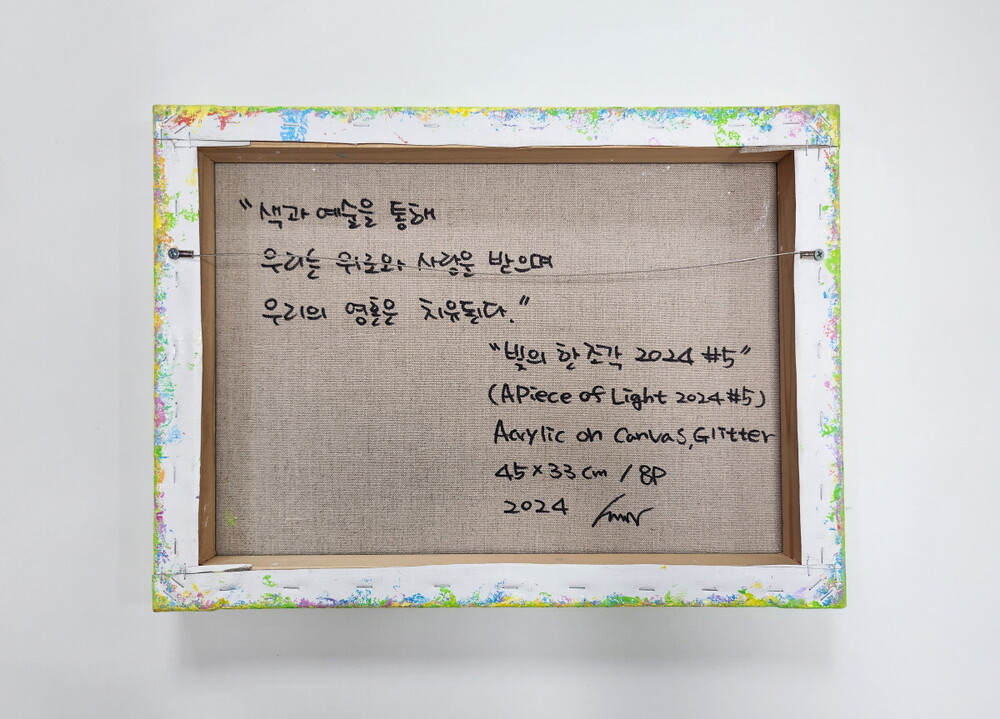 "색과 예술을 통해
우리는 위로와 사랑을 받으며
우리의 영혼은 치유된다."
"빛의 한조각 2024 #5"
(A Piece of Light 2024 #5)
Acrylic on Canvas, Glitter
45×33cm / 8P
2024